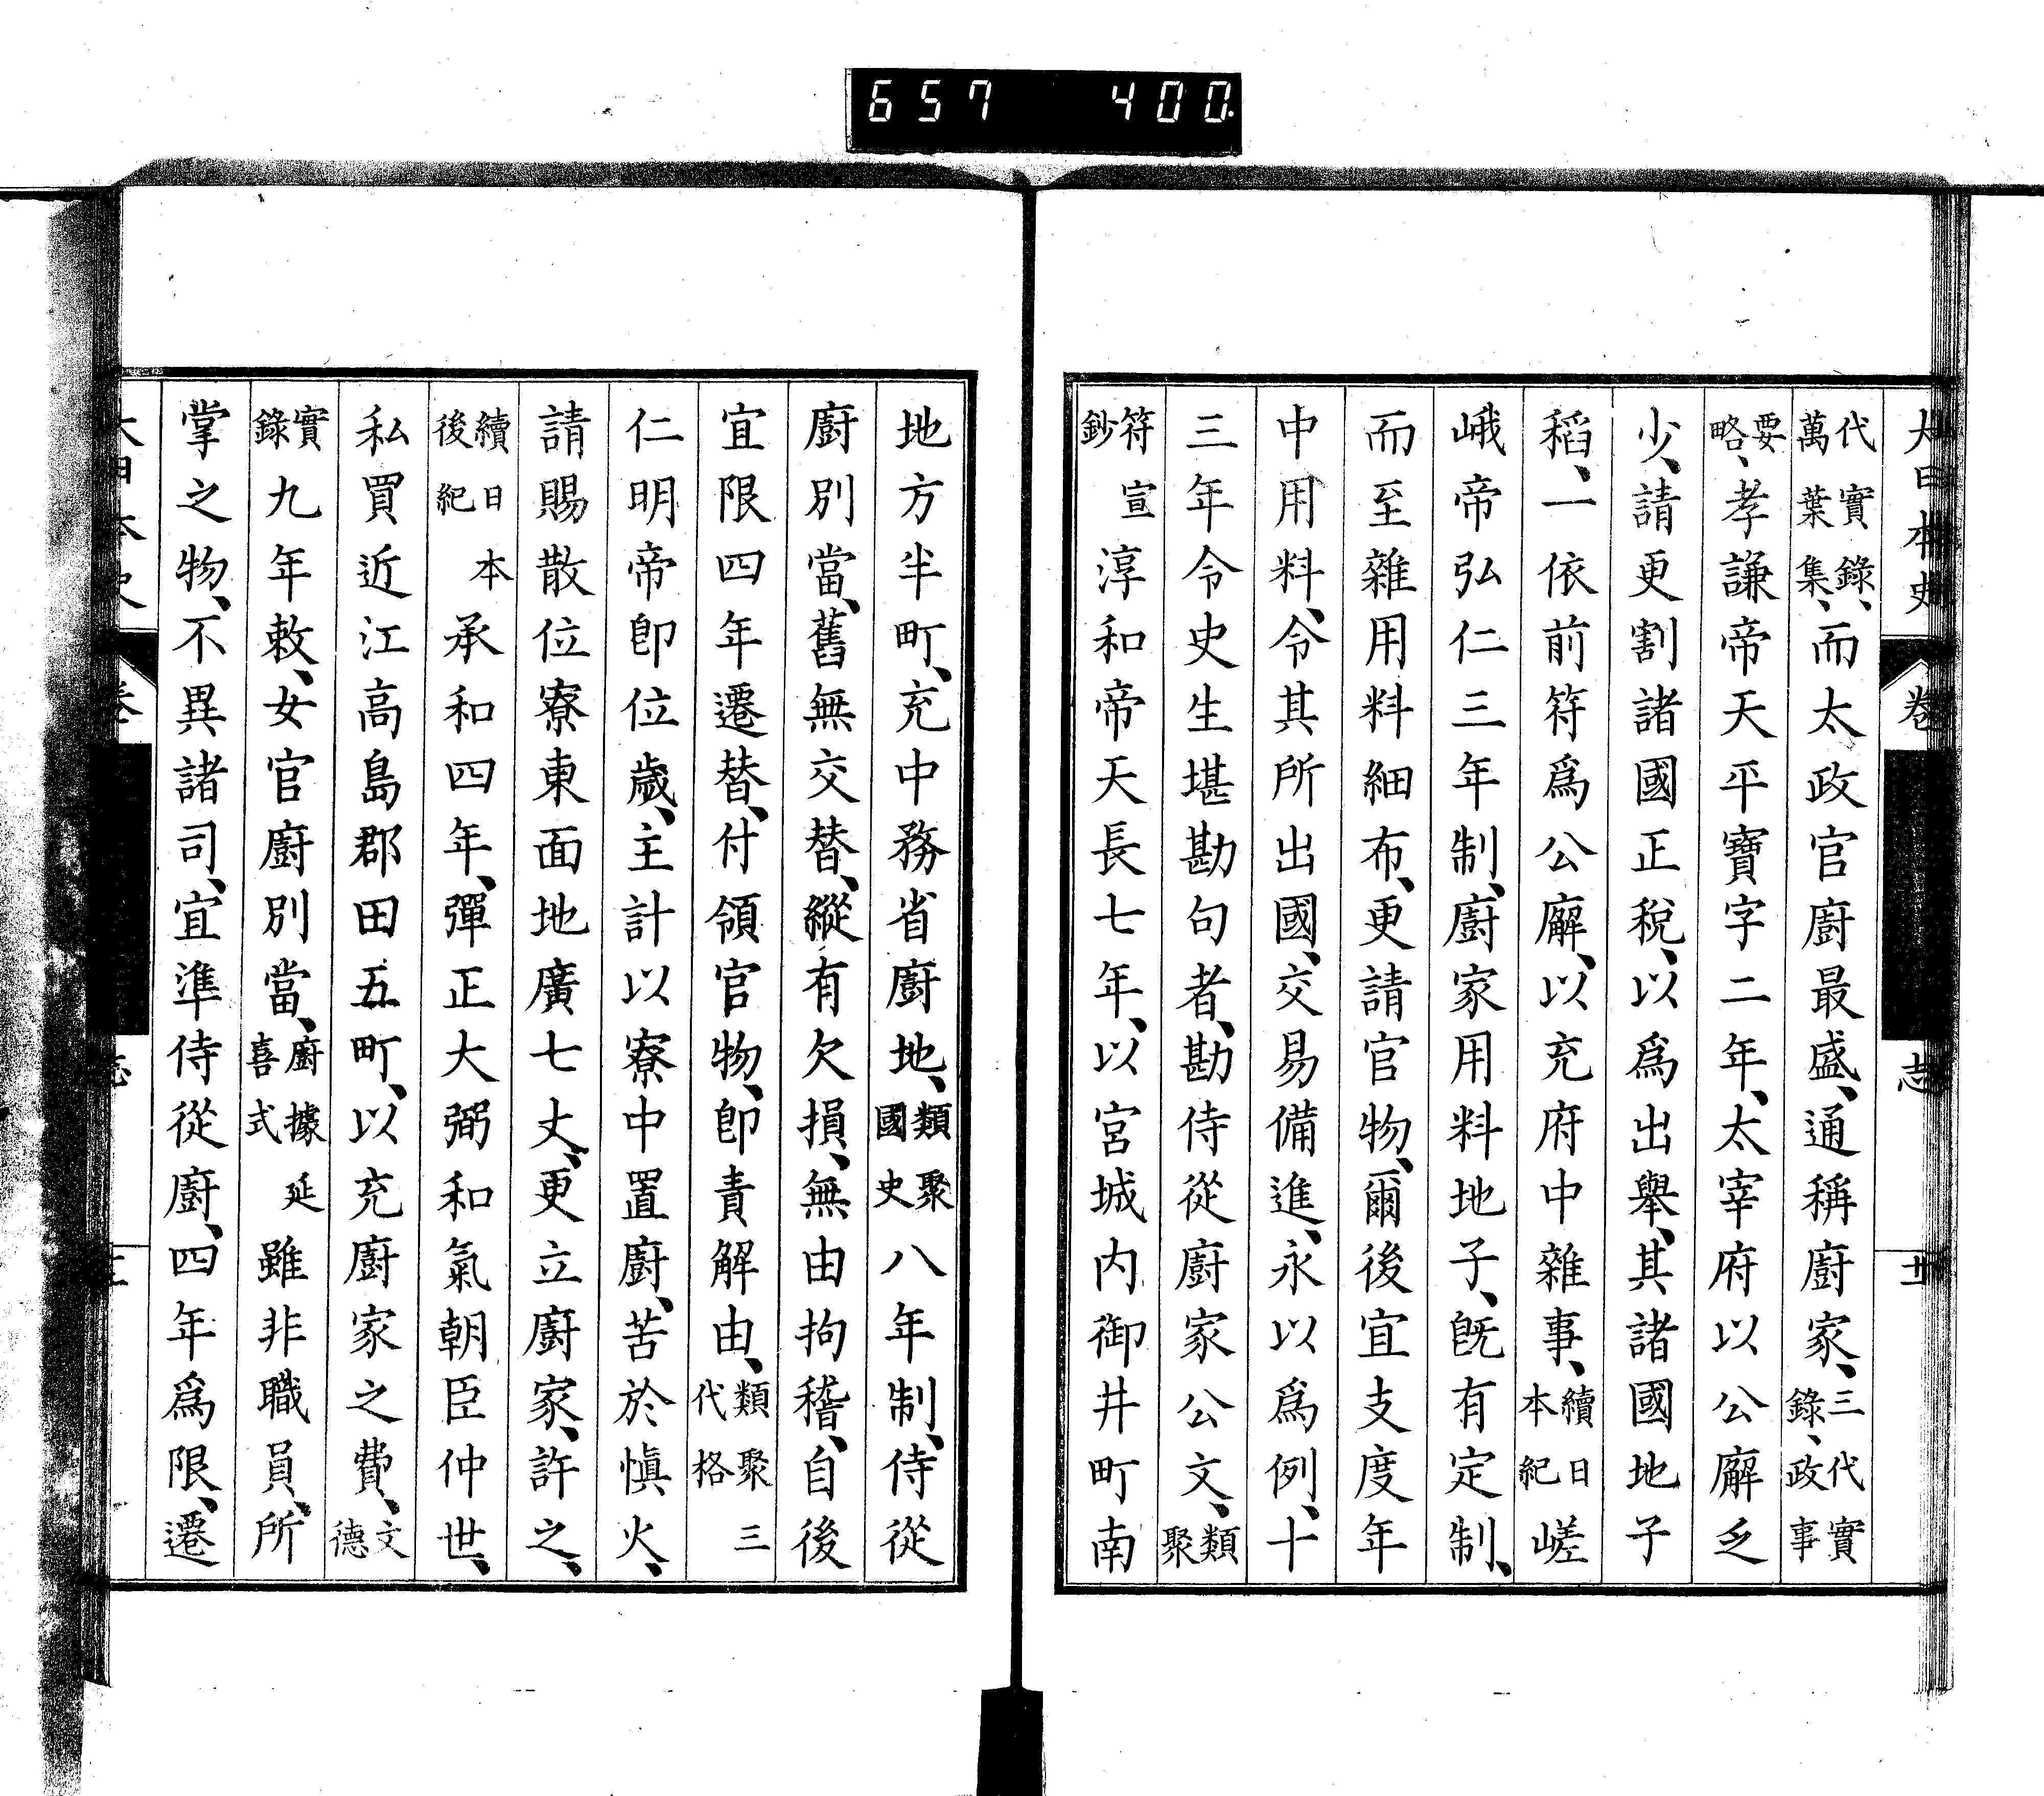 657 400
大日本史 卷 志
代實錄、萬葉集、而太政官廚最盛、通稱廚家、三代實錄、政事
要略、孝謙帝天平寶字二年、太宰府以公廨乏
少、請更割諸國正稅、以爲出擧、其諸國地子
稻、一依前符爲公廨、以充府中雜事、續日本紀嵯
峨帝弘仁三年制、廚家用料地子、旣有定制、
而至雜用料細布、更請官物、爾後宜支度年
中用料、令其所出國、交易備進、永以爲例、十
三年令史生堪勘句者、勘侍從廚家公文、類聚
符宣鈔淳和帝天長七年、以宮城内御井町南
地方半町、充中務省廚地、類聚國史八年制、侍從
廚別當、舊無交替、縱有欠損、無由拘稽、自後
宜限四年遷替、付領官物、卽責解由、類聚三代格
仁明帝卽位歲、主計以寮中置廚、苦於愼火、
請賜散位寮東面地廣七丈、更立廚家、許之、
續日本後紀承和四年、彈正大弼和氣朝臣仲世、
私買近江高島郡田五町、以充廚家之費、文德
實錄九年敕、女官廚別當、廚據延喜式雖非職員、所
掌之物、不異諸司、宜準侍從廚、四年爲限、遷
大日本史 卷 志